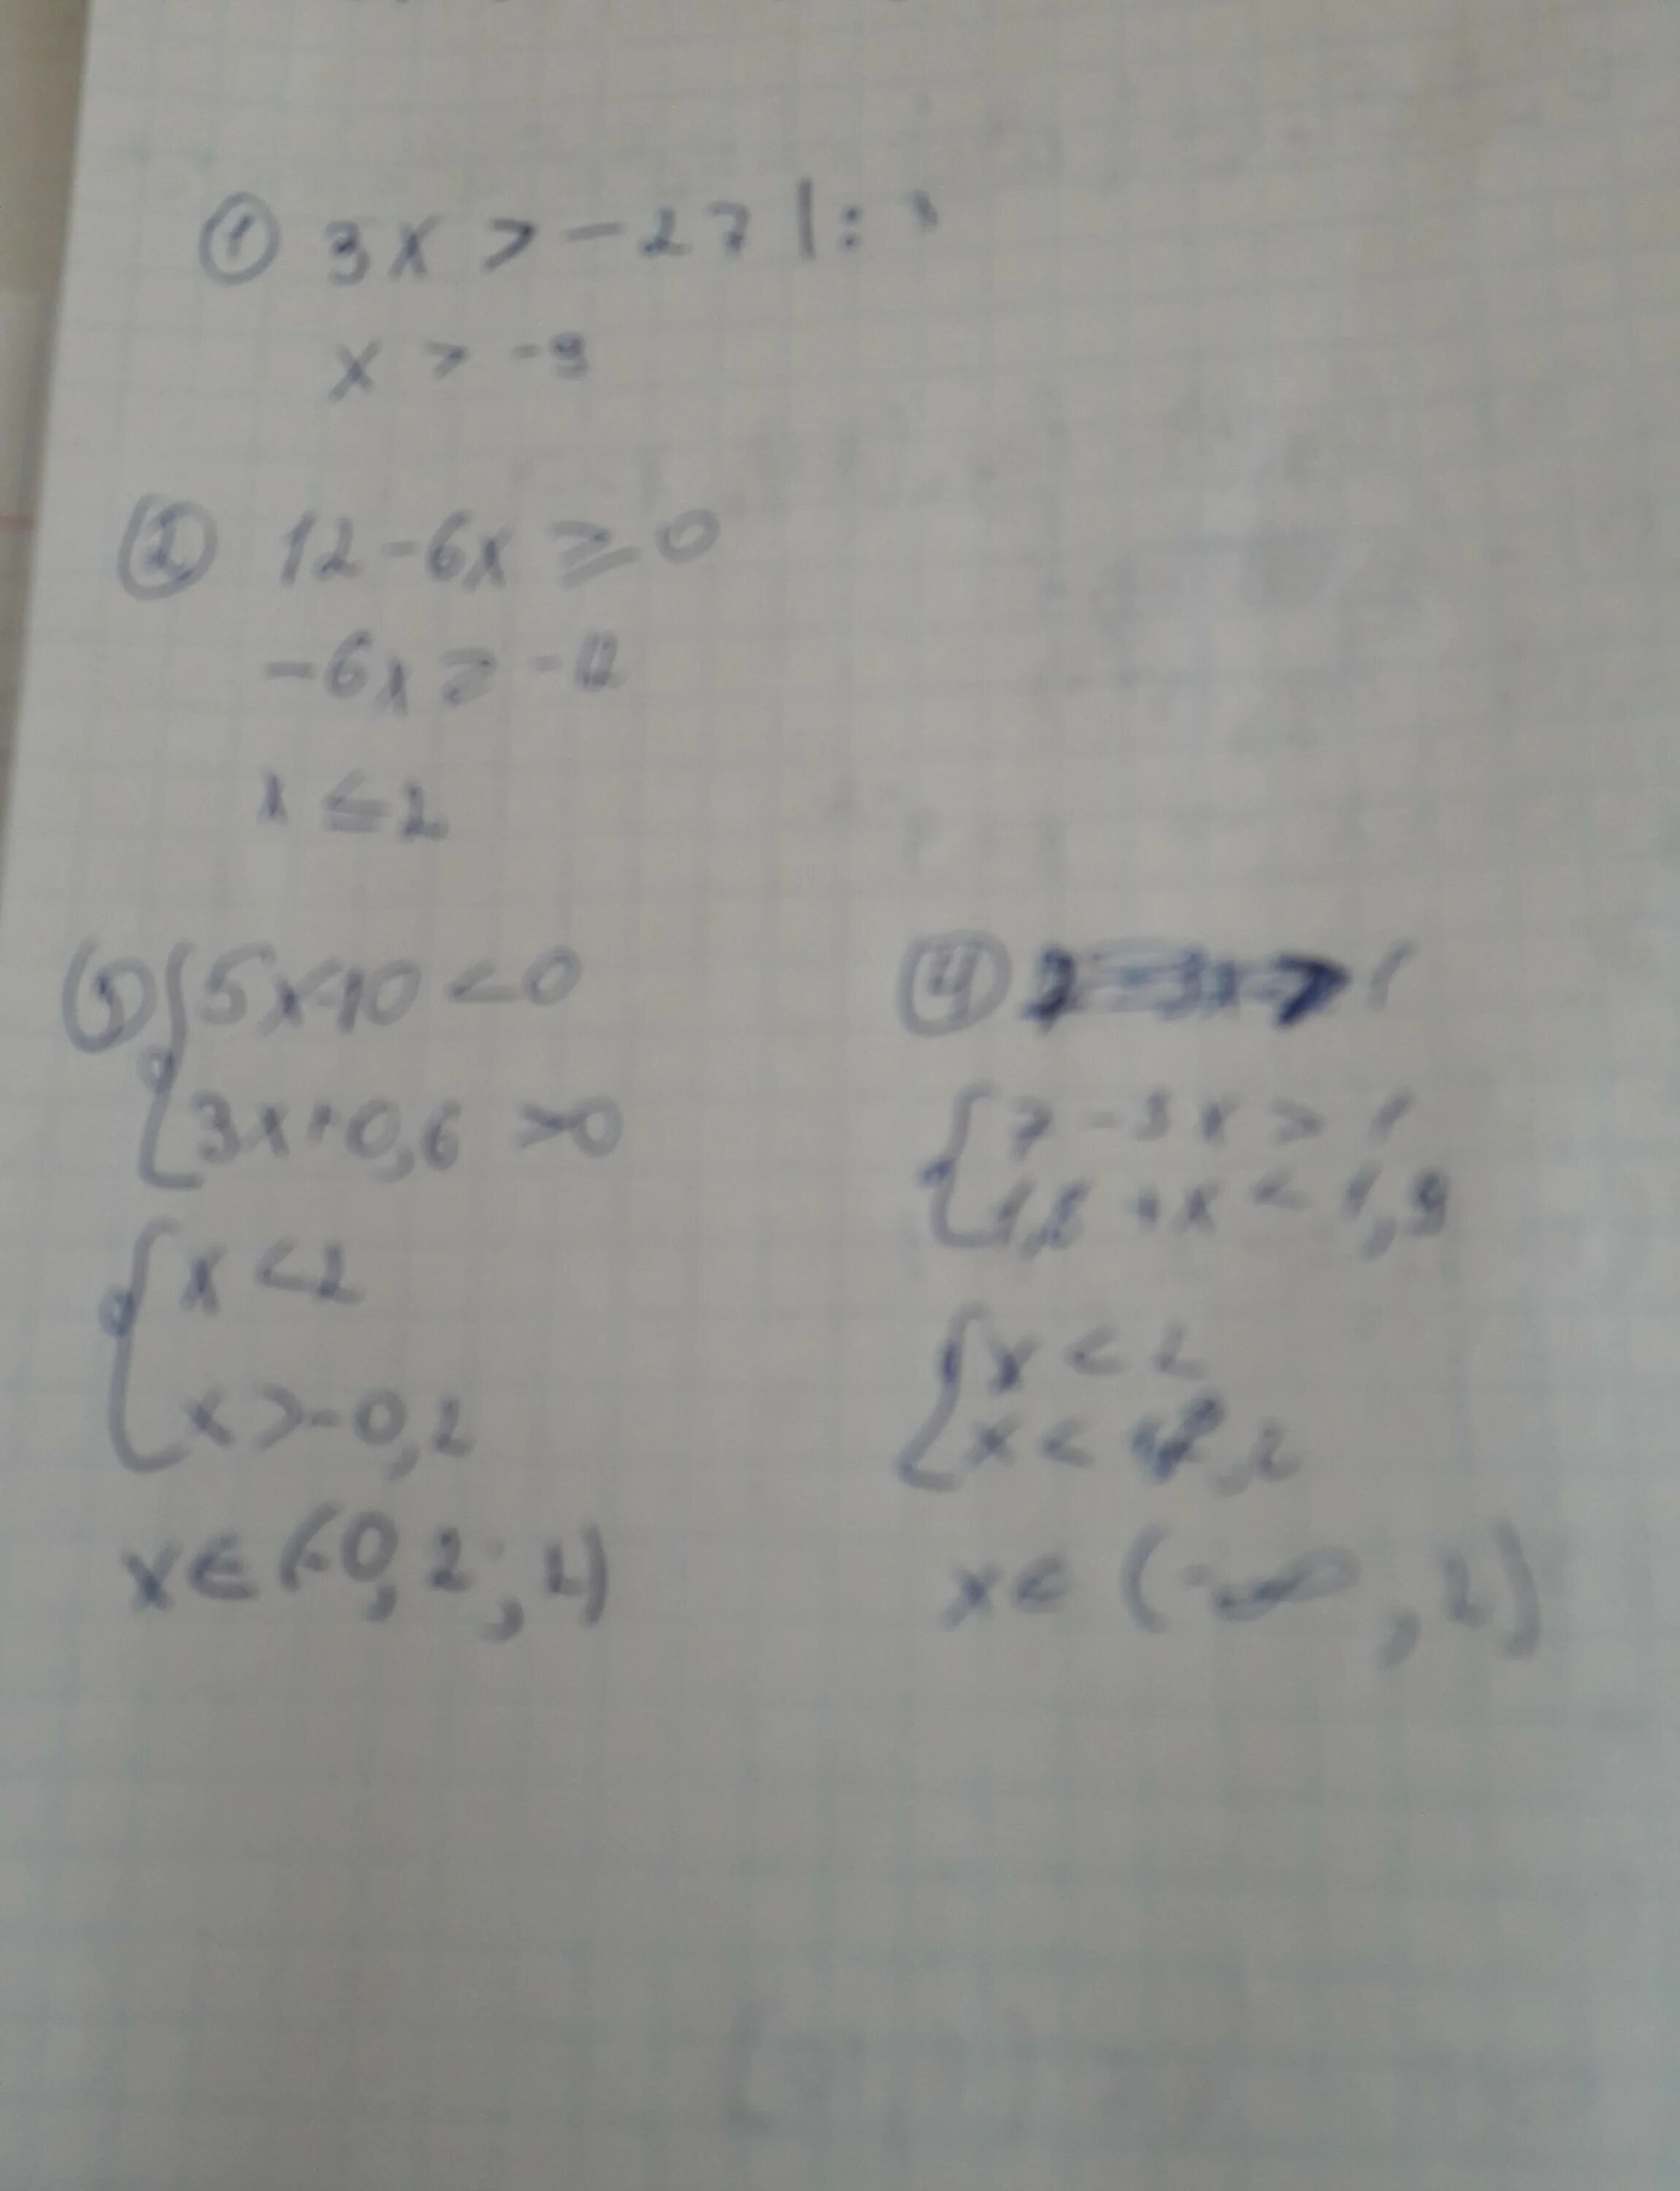 ① 3x > -27 |:
x > -9
② 12-6x ≥ 0
-6x ≥ -12
x ≤ 2
③ { 5x-10 < 0
3x+0,6 > 0
{ x < 2
x > -0,2
x ∈ (-0,2; 2)
④
{ 7 - 3x > 1
+ x < 1,9
{ x < 2
x <
x ∈ (-∞, 2)